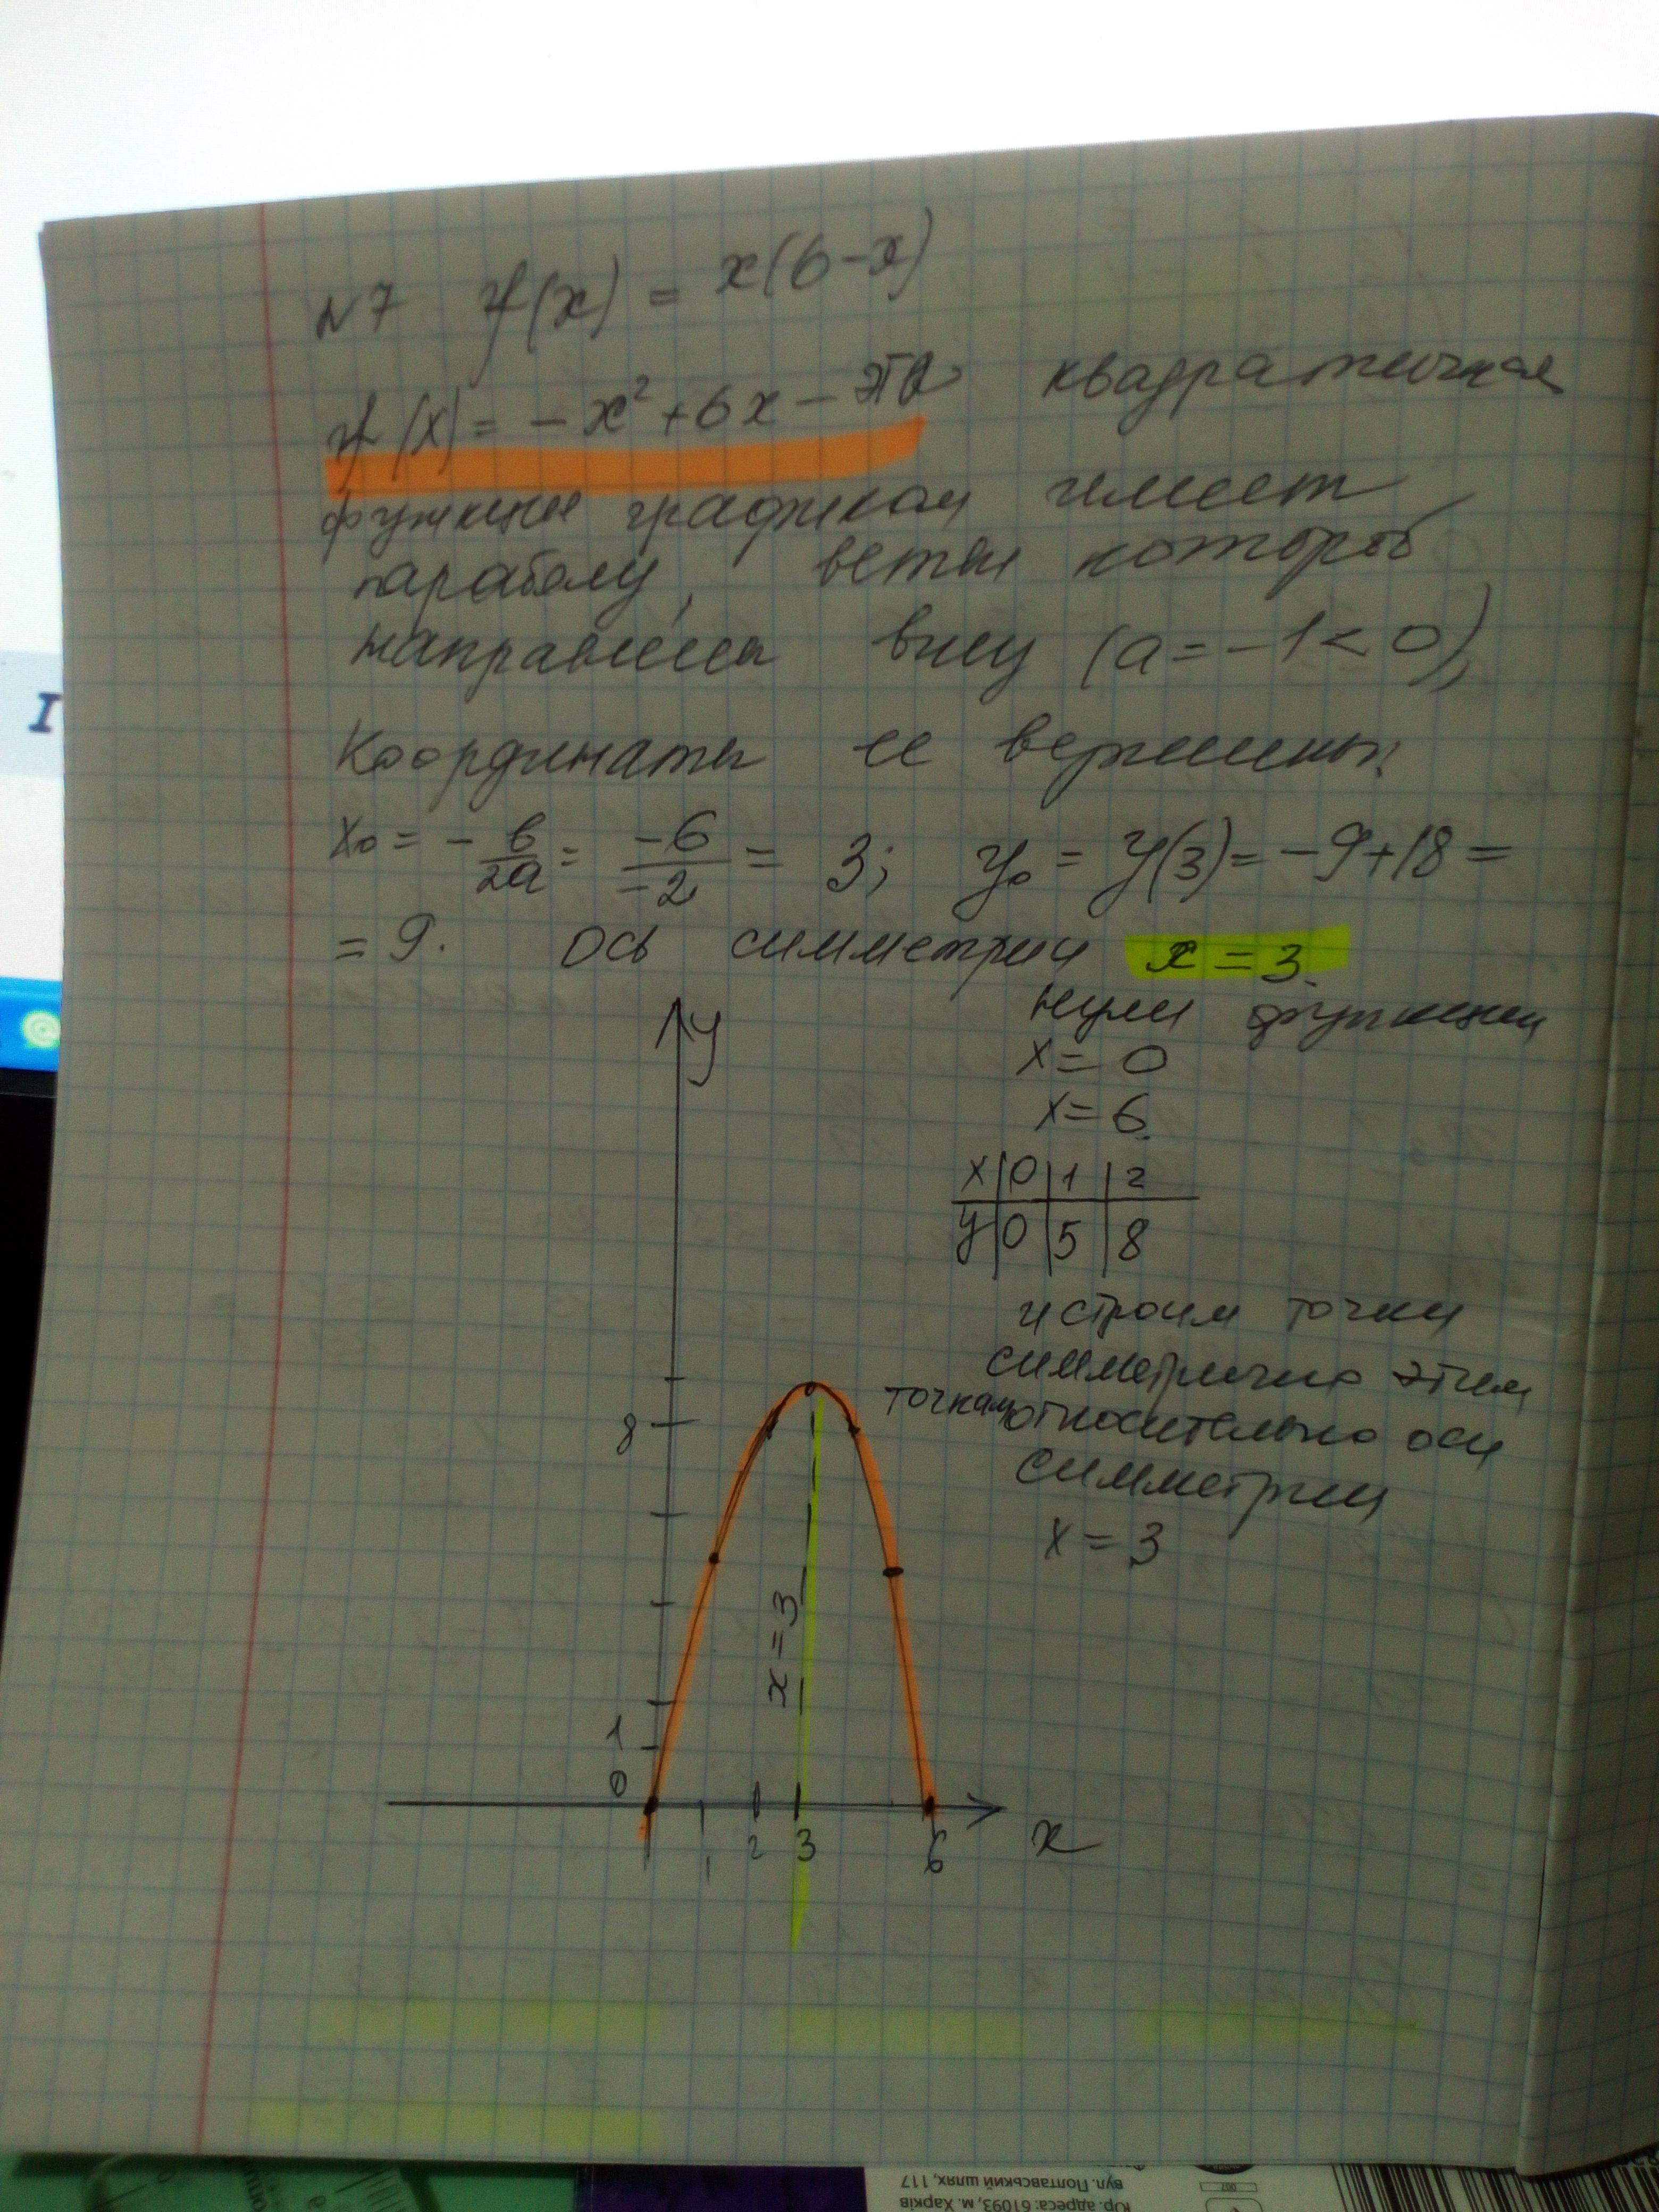 N7 f(x) = x(6-x)
f(x) = -x² + 6x - это квадратичная
функция графиком имеет
параболу, ветви которой
направлены вниз (a = -1 < 0),
Координаты ее вершины:
x₀ = - b/2a = -6/-2 = 3; y₀ = y(3) = -9+18 =
= 9. Ось симметрии x = 3.
нули функции
x = 0
x = 6.
x | 0 | 1 | 2
y | 0 | 5 | 8
и строим точки
симметрично этим
точкам относительно оси
симметрии
x = 3
y
8
x = 3
1
0
1 2 3 6 x
вул. Полтавський шлях, 117
Юр. адреса: 61093, м. Харків
I